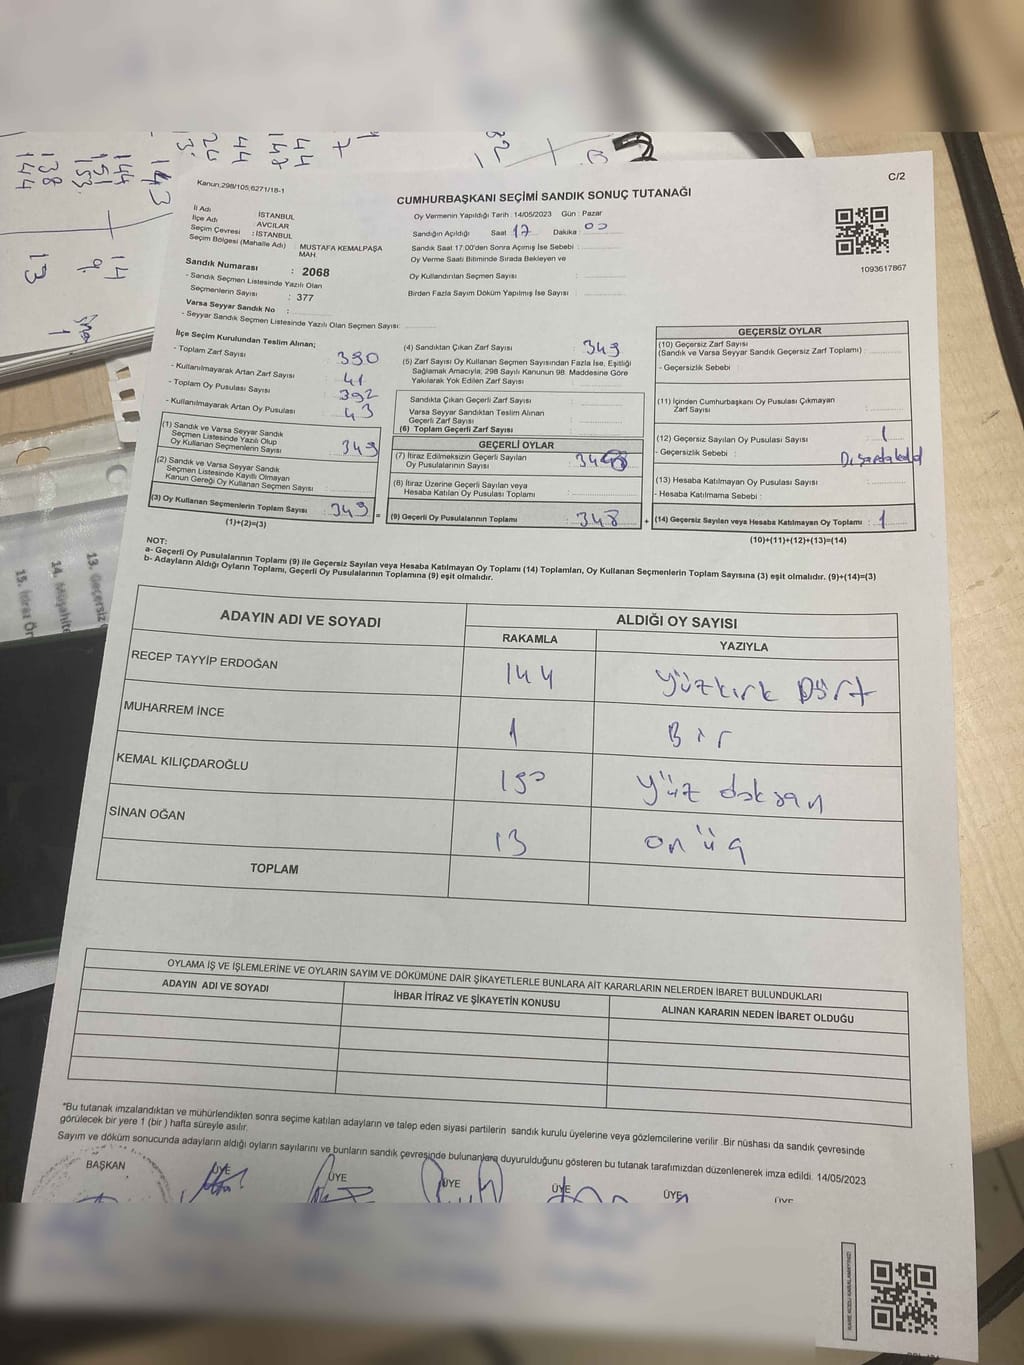 Kanun;298/105,6271/18-1
CUMHURBAŞKANI SEÇİMİ SANDIK SONUÇ TUTANAĞI
C/2
İl Adı : İSTANBUL
İlçe Adı : AVCILAR
Seçim Çevresi : İSTANBUL
Seçim Bölgesi (Mahalle Adı) MUSTAFA KEMALPAŞA MAH.
Sandık Numarası : 2068
- Sandık Seçmen Listesinde Yazılı Olan
Seçmenlerin Sayısı : 377
Varsa Seyyar Sandık No :
- Seyyar Sandık Seçmen Listesinde Yazılı Olan Seçmen Sayısı:
Oy Vermenin Yapıldığı Tarih : 14/05/2023 Gün : Pazar
Sandığın Açıldığı Saat 17 Dakika : 00
Sandık Saat 17:00'den Sonra Açımış İse Sebebi :
Oy Verme Saati Bitiminde Sırada Bekleyen ve
Oy Kullandırılan Seçmen Sayısı :
Birden Fazla Sayım Döküm Yapılmış İse Sayısı :
1093617867
İlçe Seçim Kurulundan Teslim Alınan;
- Toplam Zarf Sayısı : 390
- Kullanılmayarak Artan Zarf Sayısı : 41
- Toplam Oy Pusulası Sayısı : 392
- Kullanılmayarak Artan Oy Pusulası : 43
(1) Sandık ve Varsa Seyyar Sandık
Seçmen Listesinde Yazılı Olup
Oy Kullanan Seçmenlerin Sayısı : 349
(2) Sandık ve Varsa Seyyar Sandık
Seçmen Listesinde Kayıtlı Olmayan
Kanun Gereği Oy Kullanan Seçmen Sayısı :
(3) Oy Kullanan Seçmenlerin Toplam Sayısı : 349
(1)+(2)=(3)
(4) Sandıktan Çıkan Zarf Sayısı : 349
(5) Zarf Sayısı Oy Kullanan Seçmen Sayısından Fazla İse, Eşitliği
Sağlamak Amacıyla, 298 Sayılı Kanunun 98. Maddesine Göre
Yakılarak Yok Edilen Zarf Sayısı :
Sandıkta Çıkan Geçerli Zarf Sayısı :
Varsa Seyyar Sandıktan Teslim Alınan
Geçerli Zarf Sayısı :
(6) Toplam Geçerli Zarf Sayısı :
GEÇERLİ OYLAR
(7) İtiraz Edilmeksizin Geçerli Sayılan
Oy Pusulalarının Sayısı : 348
(8) İtiraz Üzerine Geçerli Sayılan veya
Hesaba Katılan Oy Pusulası Toplamı :
= (9) Geçerli Oy Pusulalarının Toplamı : 348
GEÇERSİZ OYLAR
(10) Geçersiz Zarf Sayısı
(Sandık ve Varsa Seyyar Sandık Geçersiz Zarf Toplamı) :
- Geçersizlik Sebebi
(11) İçinden Cumhurbaşkanı Oy Pusulası Çıkmayan
Zarf Sayısı :
(12) Geçersiz Sayılan Oy Pusulası Sayısı : 1
- Geçersizlik Sebebi :
(13) Hesaba Katılmayan Oy Pusulası Sayısı :
- Hesaba Katılmama Sebebi :
+ (14) Geçersiz Sayılan veya Hesaba Katılmayan Oy Toplamı : 1
(10)+(11)+(12)+(13)=(14)
NOT:
a- Geçerli Oy Pusulalarının Toplamı (9) ile Geçersiz Sayılan veya Hesaba Katılmayan Oy Toplamı (14) Toplamları, Oy Kullanan Seçmenlerin Toplam Sayısına (3) eşit olmalıdır. (9)+(14)=(3)
b- Adayların Aldığı Oyların Toplamı, Geçerli Oy Pusulalarının Toplamına (9) eşit olmalıdır.
ADAYIN ADI VE SOYADI
ALDIĞI OY SAYISI
RAKAMLA YAZIYLA
RECEP TAYYİP ERDOĞAN 144 yüzkırk Dört
MUHARREM İNCE 1 Bir
KEMAL KILIÇDAROĞLU 190 yüz doksan
SİNAN OĞAN 13 on üç
TOPLAM
OYLAMA İŞ VE İŞLEMLERİNE VE OYLARIN SAYIM VE DÖKÜMÜNE DAİR ŞİKAYETLERLE BUNLARA AİT KARARLARIN NELERDEN İBARET BULUNDUKLARI
ADAYIN ADI VE SOYADI İHBAR İTİRAZ VE ŞİKAYETİN KONUSU ALINAN KARARIN NEDEN İBARET OLDUĞU
*Bu tutanak imzalandıktan ve mühürlendikten sonra seçime katılan adayların ve talep eden siyasi partilerin sandık kurulu üyelerine veya gözlemcilerine verilir .Bir nüshası da sandık çevresinde
görülecek bir yere 1 (bir ) hafta süreyle asılır.
Sayım ve döküm sonucunda adayların aldığı oyların sayılarını ve bunların sandık çevresinde bulunanlara duyurulduğunu gösteren bu tutanak tarafımızdan düzenlenerek imza edildi. 14/05/2023
BAŞKAN ÜYE ÜYE ÜYE ÜYE ÜYE ÜYE